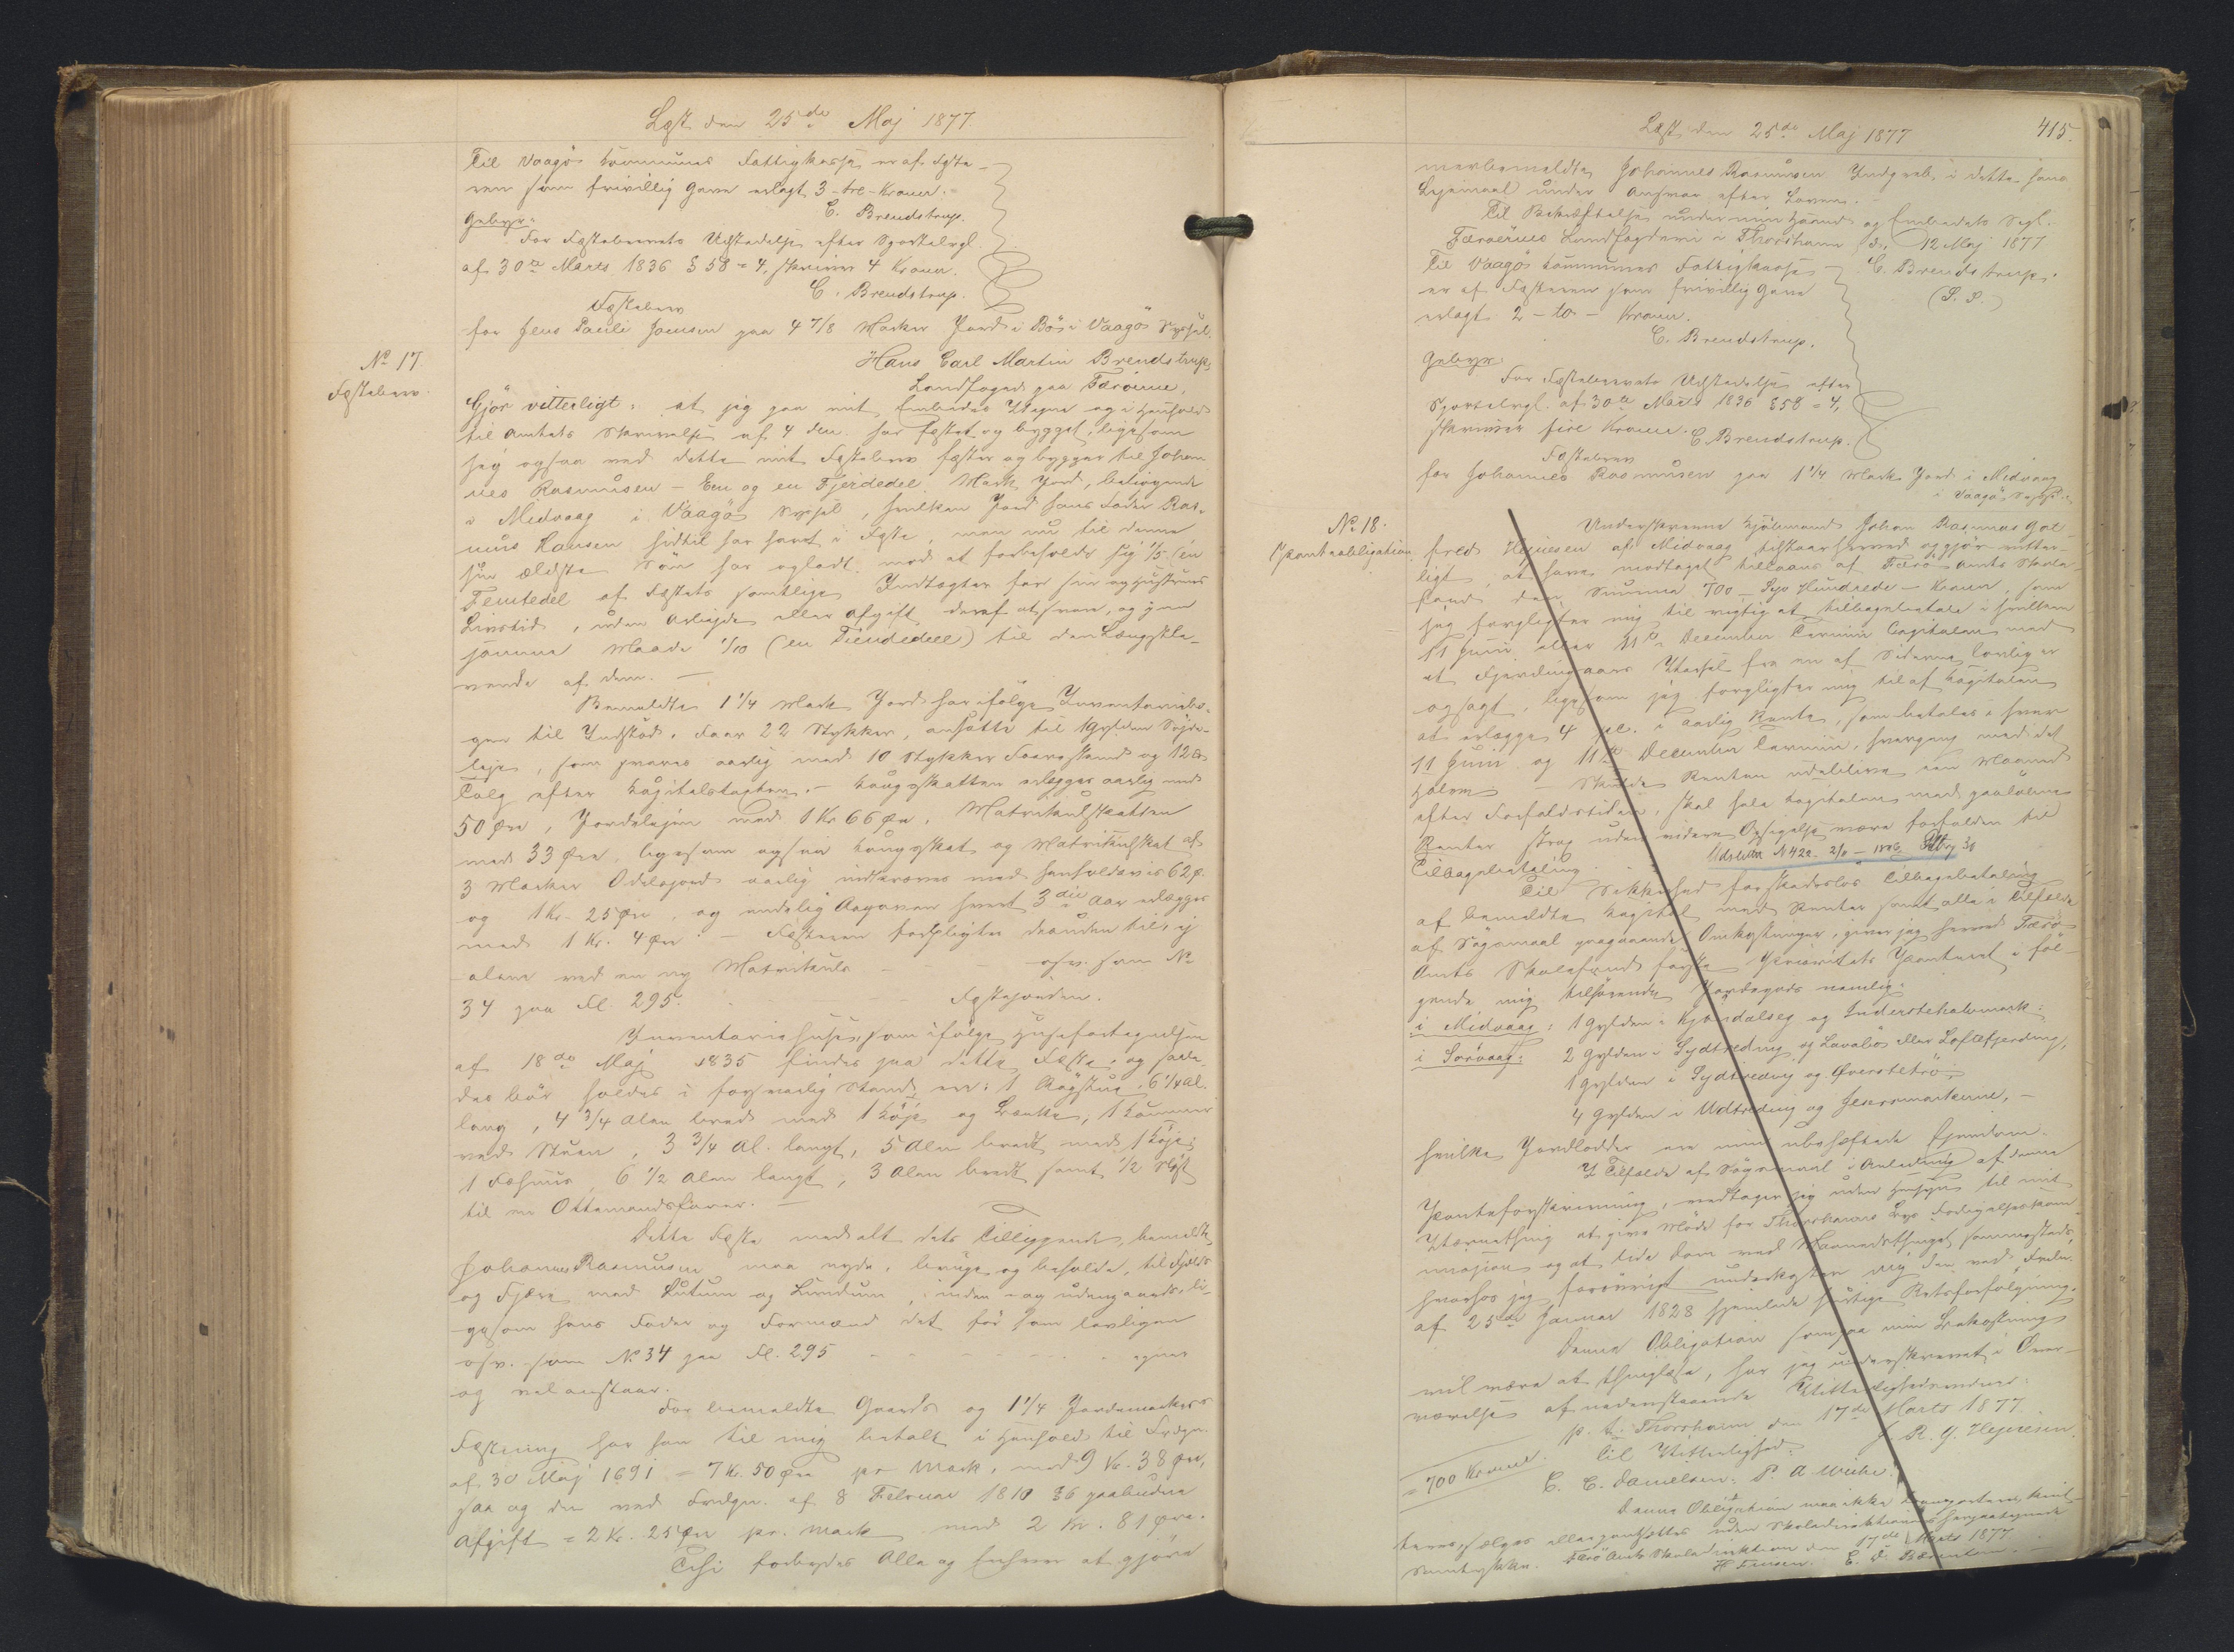 Læst den 25de Maj 1877
Til Vaagø Kommunes Fattigkasse er af Fæste-
ren som frivillig Gave erlagt 3 - tre - Kroner.
C. Brendstrup.
Gebyr:
For Fæstebrevets Udstedelse efter Sportelregl.
af 30te Marts 1836 § 58 = 4, skriver 4 Kroner.
C. Brendstrup.
Fæstebrev
for Jens Pauli Joensen paa 4 7/8 Marker Jord i Bø i Vaagø Syssel.
No 17.
Fæstebrev.
Hans Carl Martin Brendstrup,
Landfoged paa Færøerne,
Gjør vitterligt: at jeg paa mit Embedes Vegne og i Henhold
til Amtets Skrivelse af 4 ds. har fæstet og bygget, ligesom
jeg ogsaa ved dette mit Fæstebrev fæster og bygger til Johan-
nes Rasmusen - Een og en Fjerdedel Mark Jord, beliggende
i Midvaag i Vaagø Syssel, hvilken Jord hans Fader Ras-
mus Hansen hidtil har havt i Fæste, men nu til denne
sin ældste Søn har opladt, mod at forbeholde sig 1/5 (en
Femtedel) af Fæstets samtlige Indtægter for sin og Hustrues
Livstid, uden Arbejde eller Afgift deraf at svare, og paa
samme Maade 1/10 (en Tiendedeel) til den Længstle-
vende af dem. -
Bemeldte 1 1/4 Mark Jord har ifølge Inventariebo-
gen til Indstød: Faar 22 Stykker, ansatte til Gylden
leje, som svares aarlig med 10 Stykker Faareskind og 12
Talg efter Kapitelstaxten. - Kongsskatten erlægges aarlig med
50 Øre, Jordelejen med 1 Kr 66 Øre, Matrikulskatten
med 33 Øre, ligesom ogsaa Kongsskat og Matrikulskat af
3 Marker Odelsjord aarlig indkræves med henholdsvis 62 Ø.
og 1 Kr. 25 Øre, og endelig hvert 3die Aar erlægges
med 1 Kr. 4 Øre. - Fæsteren forpligter desuden til, ej
alene ved en ny Matrikuls - - - osv. som No
34 paa Fl. 295. - - - Fæstejorden.
Inventariehuse, som ifølge Husefortegnelsen
af 18de Maj 1835 findes paa dette Fæste, og saale-
des bør holdes i forsvarlig Stand, ere: 1 Røgstue, 6 1/4 Al.
lang, 4 3/4 Alen bred med 1 Køje og Bænke, 1 Kammer
ved Stuen, 3 3/4 Al. langt, 5 Alen bredt, med 1 Køje,
1 Fæhuus, 6 1/2 Alen langt, 3 Alen bredt samt 1/2 Nøst
til en Ottemandsfarer. -
Dette Fæste med alt dets Tilliggende, bemeldte
Johannes Rasmusen maa nyde, bruge og beholde, til Fjelds
og Fjære med Lutum og Lundum, inden- og udengaards, li-
gesom hans Fader og Formænd det før ham lovligen
osv. som No 34 paa Fl. 295 - - - - - - egner
og vel anstaar.
For bemeldte Gaards og 1 1/4 Jordemarkers
Fæstning har han til mig betalt i Henhold til Frdgn.
af 30 Maj 1691 = 7 Kr. 50 Øre pr Mark, med 9 Kr. 38 Øre,
saa og den ved Frdgn. af 8 Februar 1810 § 6 paabudne
Afgift = 2 Kr. 25 Øre pr. Mark med 2 Kr. 81 Øre.
Thi forbydes Alle og Enhver at gjøre
Læst den 25de Maj 1877
415.
merbemeldte Johannes Rasmusen Indgreb i dette hans
Lejemaal under Ansvar efter Loven. -
Til Bekræftelse under min Haand og Embedets Segl.
Færøernes Landfogderi i Thorshavn d. 12 Maj 1877
C. Brendstrup.
(L. S.)
Til Vaagø Kommunes Fattigkasse
er af Fæsteren som frivillig Gave
erlagt 2 - to - Kroner.
C. Brendstrup.
Gebyr:
For Fæstebrevets Udstedelse efter
Sportelregl. af 30te Marts 1836 § 58 = 4,
skriver fire Kroner. C. Brendstrup.
Fæstebrev
for Johannes Rasmusen paa 1 1/4 Mark Jord i Midvaag
i Vaagø Syssel.
No 18.
Panteobligation.
Underskrevne Johan Rasmus Got-
fred Hejnesen af Midvaag tilstaar herved og gjør vitter-
ligt, at have modtaget tillaans af Færø Amts Skole-
fond den Summa 700 - Syv Hundrede - Kroner, som
jeg forpligter mig til rigtig at tilbagebetale i hvilken
11 Juni eller 11te December Termin Capitalen med
et Fjerdingaars Varsel fra en af Siderne lovlig er
opsagt, ligesom jeg forpligter mig til af Kapitalen
at erlægge 4 pCt. i aarlig Rente, som betales i hver
11 Juni og 11te December Termin, hvergang med det
Halve. - Skulde Renten udeblive een Maaned
efter Forfaldstiden, skal hele Capitalen med paaløbne
Renter strax uden videre Opsigelse være forfalden til
Tilbagebetaling. -
Udslettet N 422. 2/11 - 1906
Til Sikkerhed for skadesløs Tilbagebetaling
af bemeldte Kapital med Renter samt alle i Tilfælde
af Søgsmaal paagaaende Omkostninger, giver jeg herved Færø
Amts Skolefond første Prioritets Panteret i føl-
gende mig tilhørende Jordegods nemlig:
i Midvaag: 1 Gylden i Kjøndalseg og Inderstehalvmark:
i Sørvaag: 2 Gylden i Sydtreding og Lavaløs eller Loftefjerding,
1 Gylden i Sydtreding og Øverstetrø,
4 Gylden i Udtreding og Jensmarkerne, -
hvilke Jordlodder ere min ubehæftede Ejendom.
I Tilfælde af Søgsmaal i Anledning af denne
Panteforskrivning, vedtager jeg uden Hensyn til mit
Værnething at give Møde for Thorshavns Bys Forligelseskom-
mission og at lide Dom ved Maanedsthinget sammesteds,
hvorhos jeg forøvrigt underkaster mig den ved Frdn.
af 25de Januar 1828 hjemlede hurtige Retsforfølgning.
Denne Obligation som paa min Bekostning
vil være at thinglæse, har jeg underskrevet i Over-
værelse af nedenstaaende Vitterlighedsvidner.
p. t. Thorshavn den 17de Marts 1877.
J. R. G. Hejnesen.
= 700 Kroner.
Til Vitterlighed:
C. C. Danielsen. P. A. Weihe.
Denne Obligation maa ikke transporteres, kvit-
teres, sælges eller pantsættes uden Skoledirektionens herpaategnede
Samtykke. Færø Amts Skoledirektion den 17de Marts 1877
H Finsen. E. F. Bærentsen.